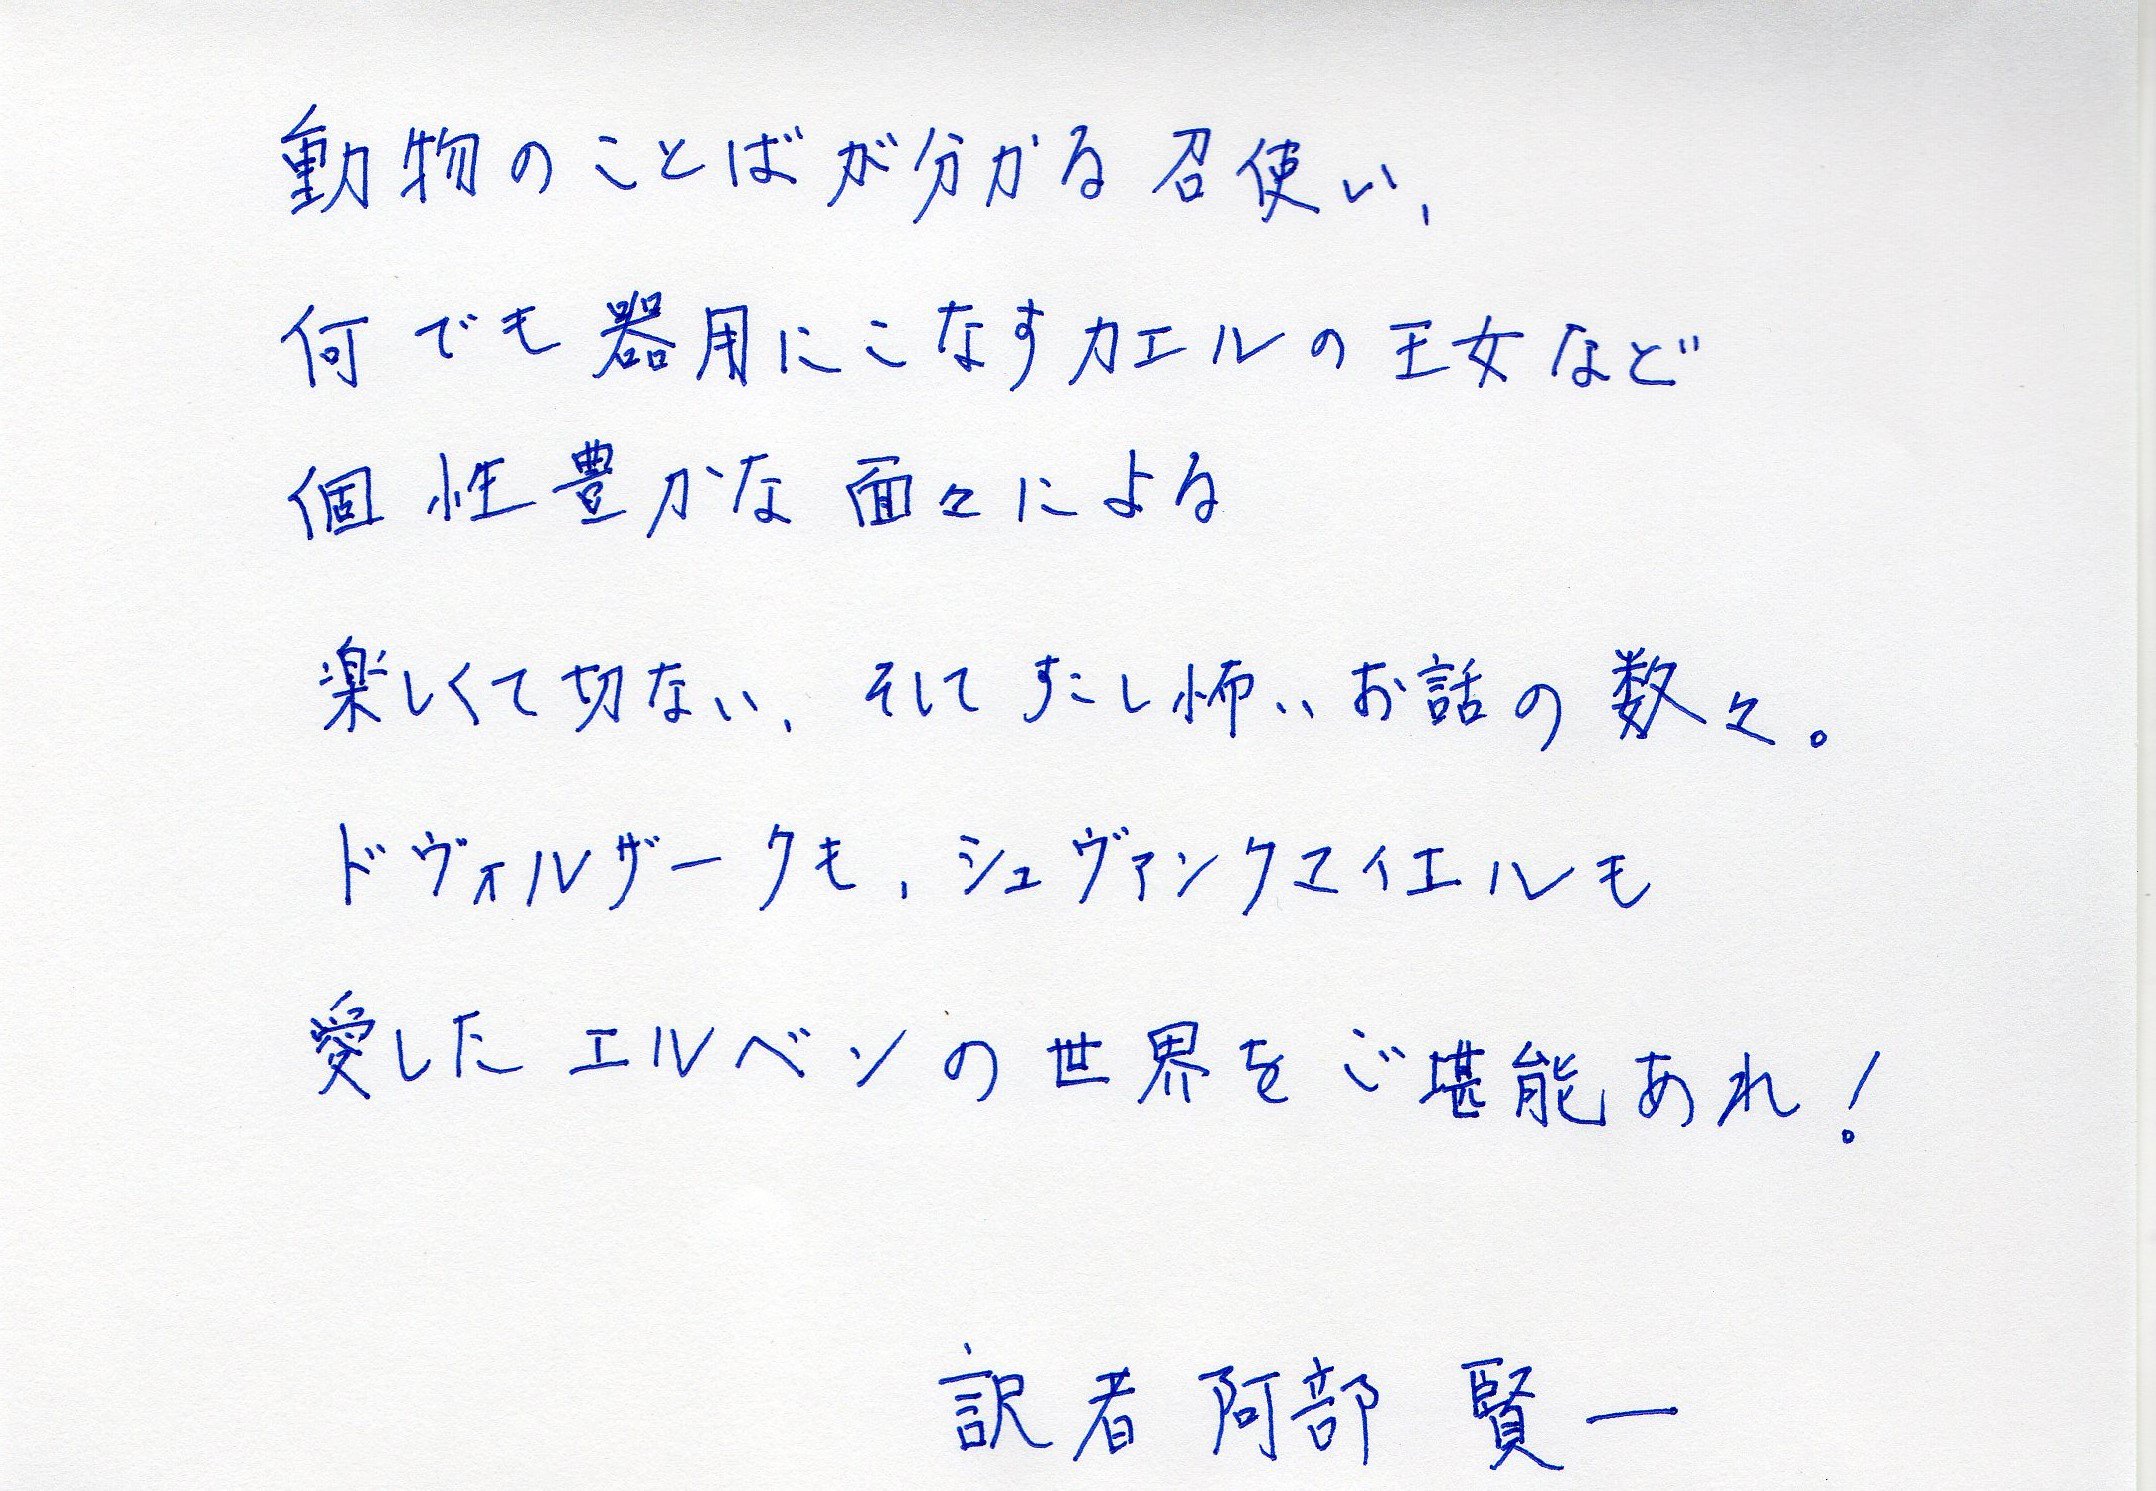 動物のことばが分かる召使い、
何でも器用にこなすカエルの王女など
個性豊かな面々による
楽しくて切ない、そしてすこし怖いお話の数々。
ドヴォルザークも、シュヴァンクマイエルも
愛したエルベンの世界をご堪能あれ！
訳者 阿部 賢一